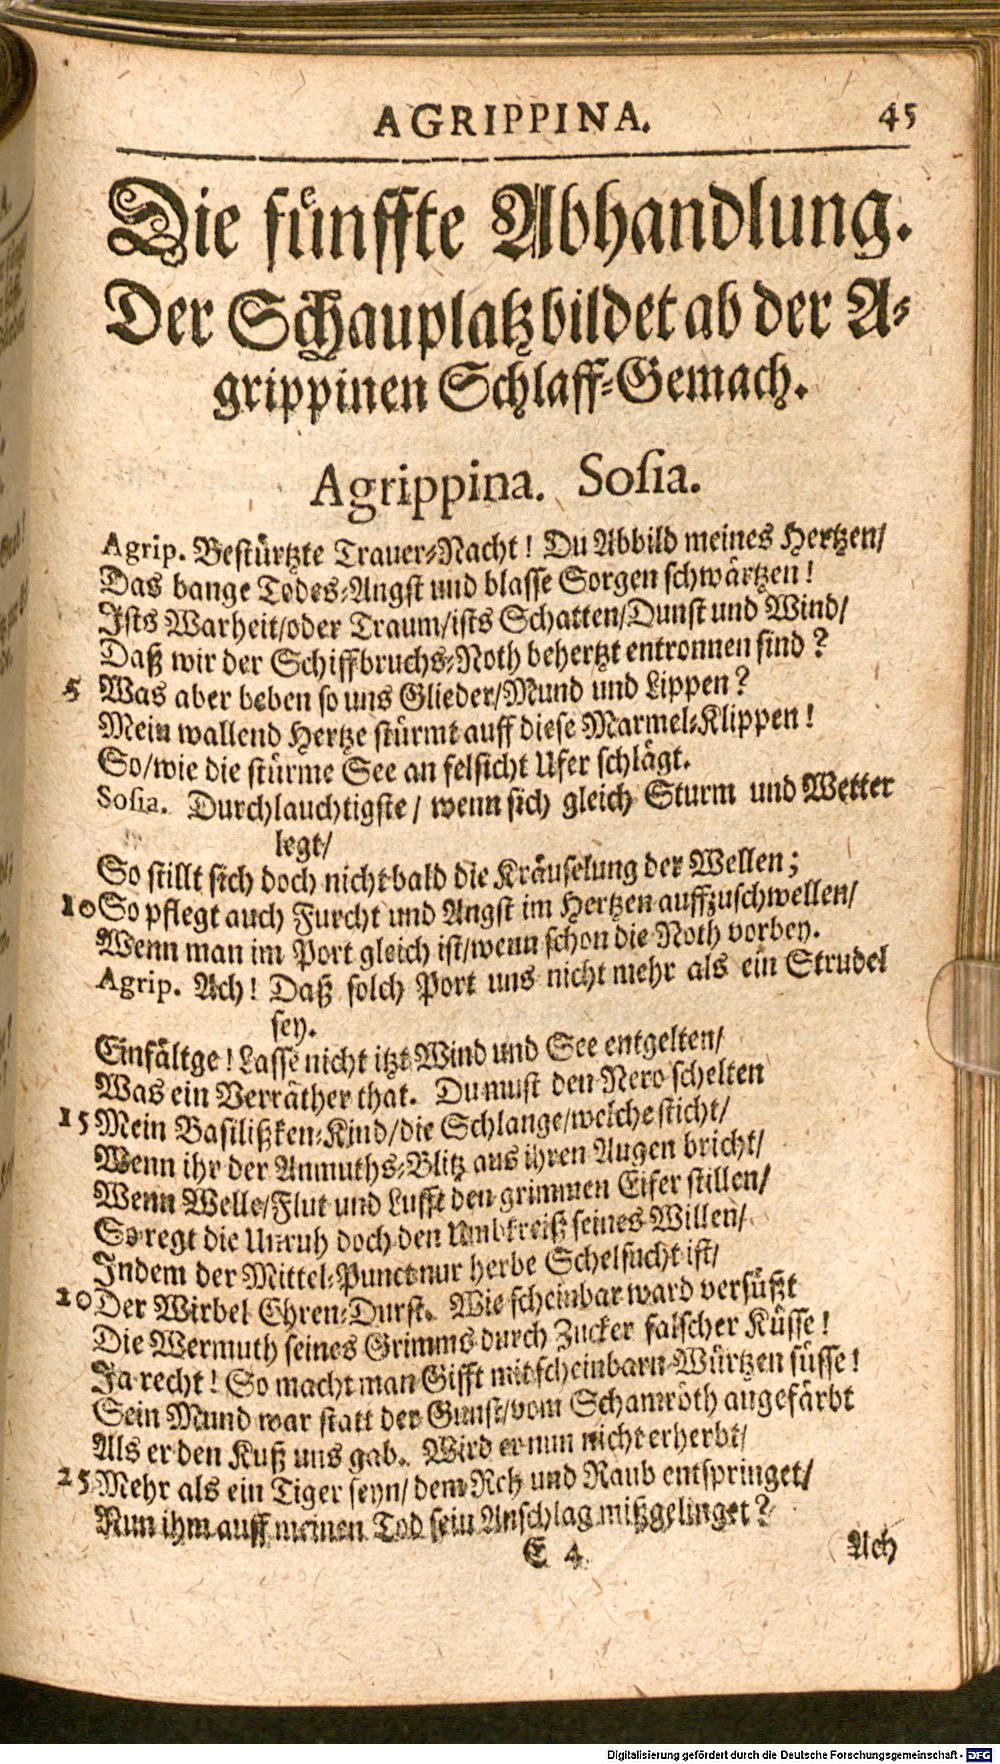 AGRIPPINA. 45
Die fünffte Abhandlung.
Der Schauplatz bildet ab der A-
grippinen Schlaff-Gemach.
Agrippina. Soſia.
Agrip. Beſtürtzte Trauer-Nacht! Du Abbild meines Hertzen/
Das bange Todes-Angſt und blaſſe Sorgen ſchwärtzen!
Iſts Warheit/oder Traum/iſts Schatten/Dunſt und Wind/
Daß wir der Schiffbruchs-Noth behertzt entronnen ſind?
5 Was aber beben ſo uns Glieder/Mund und Lippen?
Mein wallend Hertze ſtürmt auff dieſe Marmel-Klippen!
So/wie die ſtürme See an felſicht Ufer ſchlägt.
Soſia. Durchlauchtigſte/ wenn ſich gleich Sturm und Wetter
legt/
So ſtillt ſich doch nicht bald die Kräuſelung der Wellen;
10 So pflegt auch Furcht und Angſt im Hertzen auffzuſchwellen/
Wenn man im Port gleich iſt/wenn ſchon die Noth vorbey.
Agrip. Ach! Daß ſolch Port uns nicht mehr als ein Strudel
ſey.
Einfältge! Laſſe nicht itzt Wind und See entgelten/
Was ein Verräther that. Du muſt den Nero ſchelten
15 Mein Baſilißken-Kind/die Schlange/welche ſticht/
Wenn ihr der Anmuths-Blitz aus ihren Augen bricht/
Wenn Welle/Flut und Lufft den grimmen Eifer ſtillen/
So regt die Unruh doch den Umbkreiß ſeines Willen/
Indem der Mittel-Punct nur herbe Schelſucht iſt/
20 Der Wirbel Ehren-Durſt. Wie ſcheinbar ward verſüßt
Die Wermuth ſeines Grimms durch Zucker falſcher Küſſe!
Ja recht! So macht man Gifft mit ſcheinbarn Würtzen ſüſſe!
Sein Mund war ſtatt der Gunſt/vom Schamröth angefärbt
Als er den Kuß uns gab. Wird er nun nicht erherbt/
25 Mehr als ein Tiger ſeyn/ dem Reh und Raub entſpringet/
Nun ihm auff meinen Tod ſein Anſchlag mißgelinget?
E 4 Ach
Digitalisierung gefördert durch die Deutsche Forschungsgemeinschaft - DFG